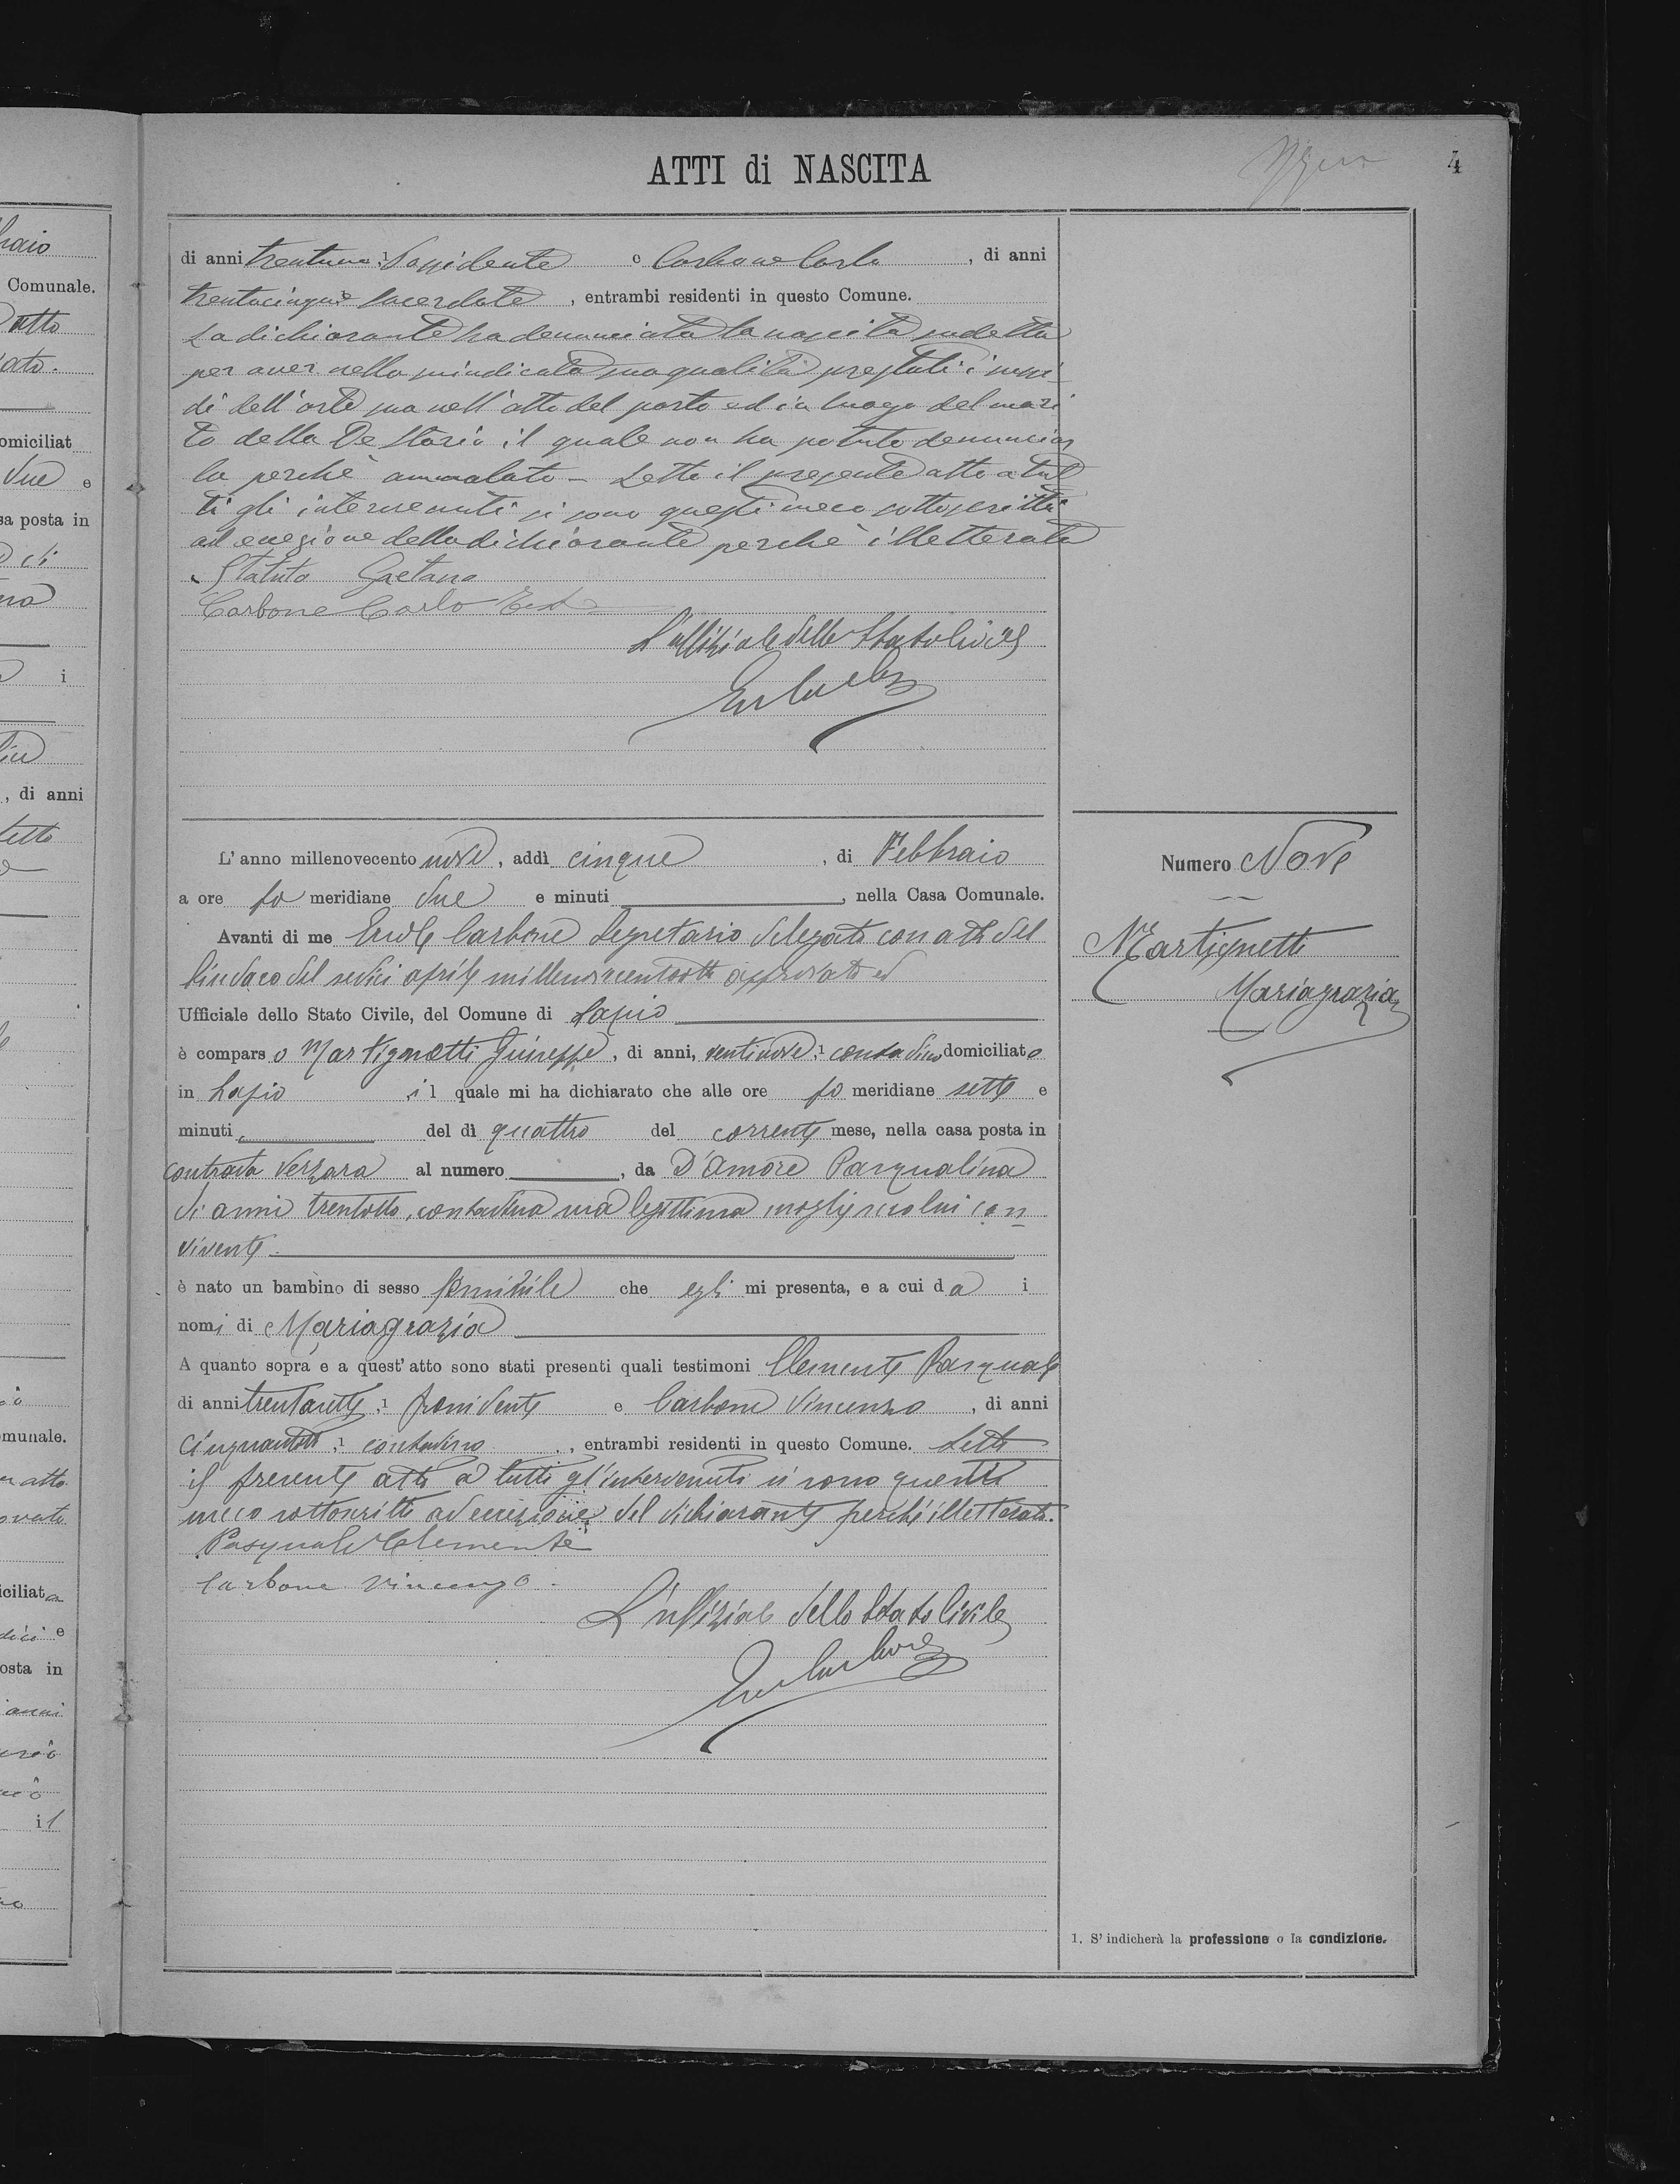 ATTI di NASCITA
4
di anni trentuno, Possidente e Carbone Carlo, di anni
trentacinque Sacerdote, entrambi residenti in questo Comune.
La dichiarante ha denunciata la nascita sudetta
per aver nella suindicata sua qualità prestati i sussi
di dell'arte sua nell'atto del parto ed in luogo del mari
to della De Stasio il quale non ha potuto denunciar
la perchè ammalato - Letto il presente atto a tut
ti gli intervenuti si sono questi meco sottoscritti
ad eccezione della dichiarante perchè illetterata
Statuto Gaetano
Carbone Carlo Test
L'uffiziale dello Stato Civile
L'anno millenovecento nove, addì cinque, di Febbraio
a ore po meridiane due e minuti, nella Casa Comunale.
Avanti di me Ercole Carbone Segretario delegato con atto del
Sindaco del sedici aprile millenovecentootto approvato ed
Ufficiale dello Stato Civile, del Comune di Lapio
è comparso Martignetti Giuseppe, di anni, ventinove,1 contadino domiciliato
in Lapio il quale mi ha dichiarato che alle ore po meridiane sette e
minuti del dì quattro del corrente mese, nella casa posta in
contrada Verzara al numero, da D'Amore Pasqualina
di anni trentotto, contadina sua legittima moglie seco lui con
vivente.
è nato un bambino di sesso feminile che egli mi presenta, e a cui da i
nomi di Mariagrazia
A quanto sopra e a quest'atto sono stati presenti quali testimoni Clemente Pasquale
di anni trentasette,1 possidente e Carbone Vincenzo, di anni
cinquantotto,1 contadino, entrambi residenti in questo Comune. Letto
il presente atto a tutti gl'intervenuti si sono questi
meco sottoscritti ad eccezione del dichiarante perchè illetterato.
Pasquale Clemente
Carbone Vincenzo.
L'uffiziale dello Stato Civile
Numero Nove
Martignetti
Mariagrazia
1. S'indicherà la professione o la condizione.